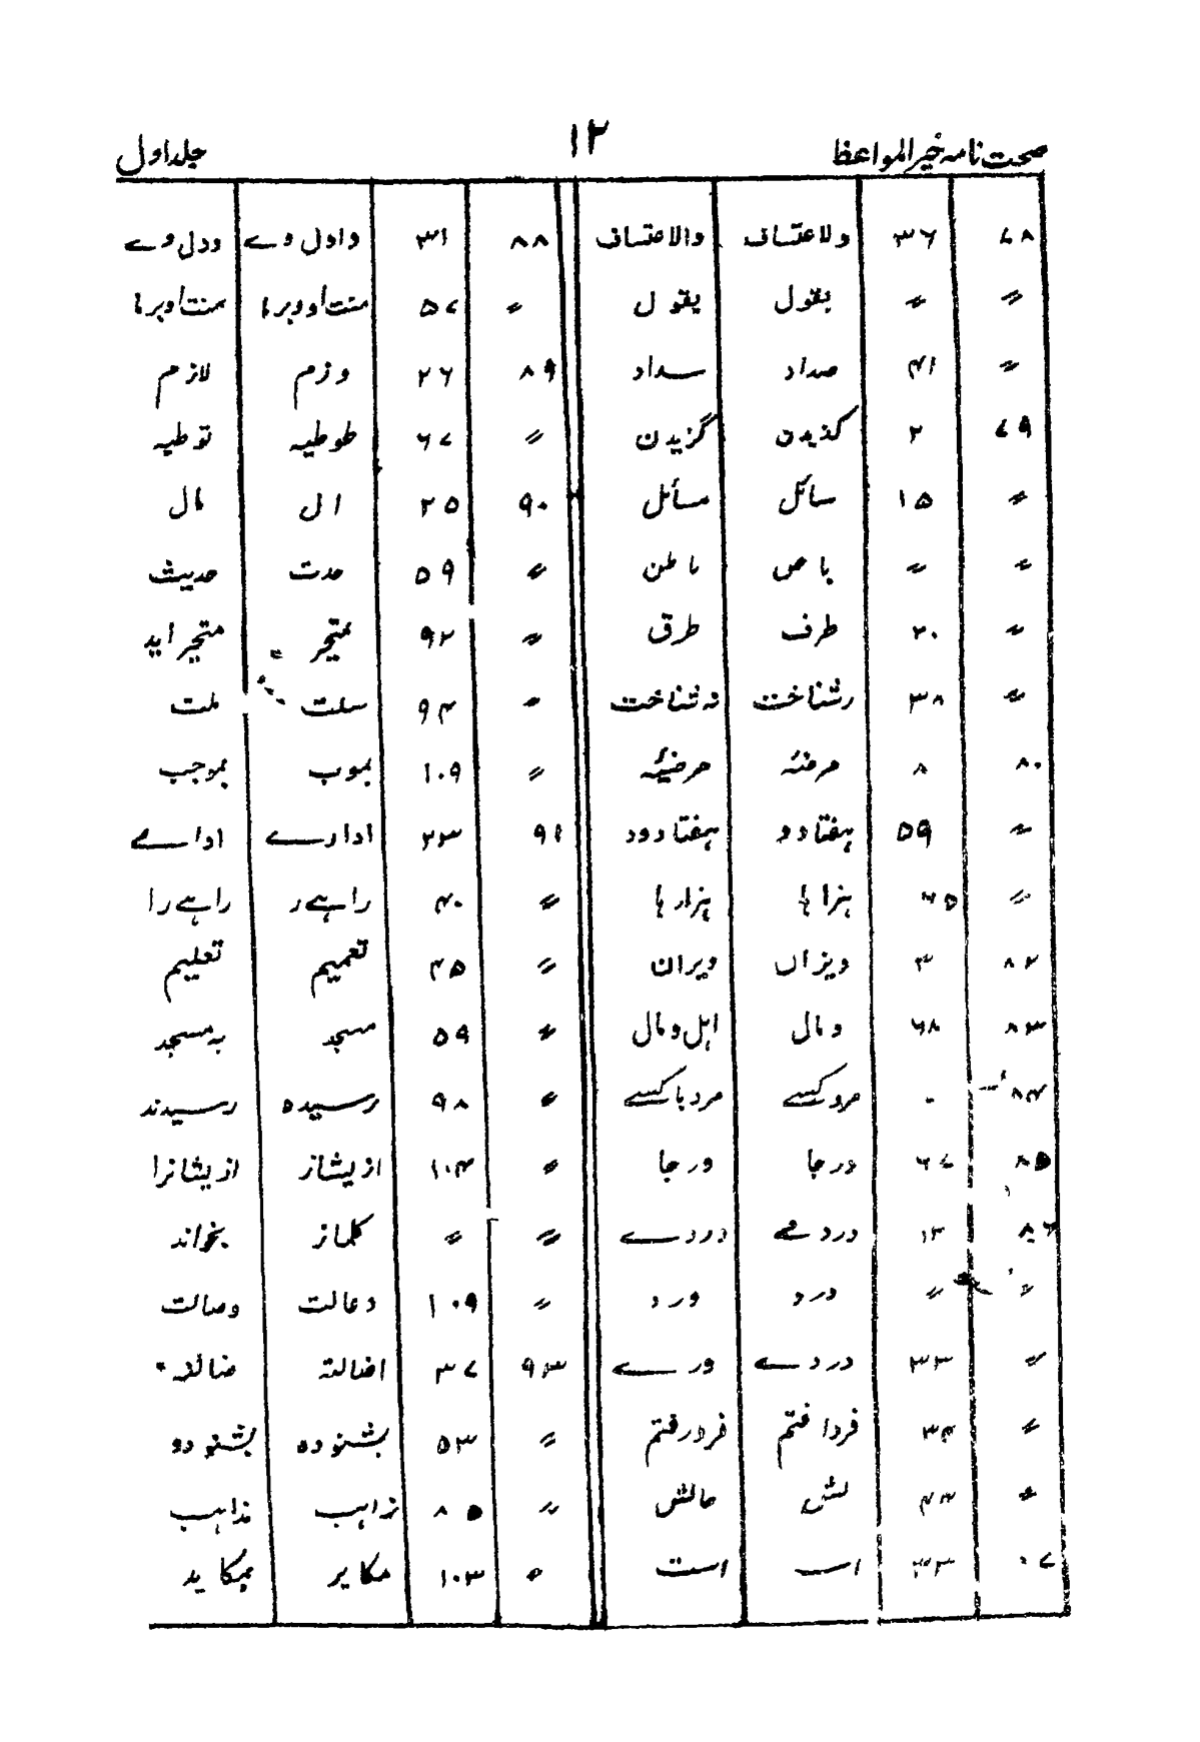 صحت نامہ خیر المواعظ ۱۲ جلد اول
۷۸ ۳۶ ولاعتساف والاعتساف ۸۸ ۳۱ واول وے ودل وے
〃 〃 بقول یقول 〃 ۵۷
〃 ۴۱ صداد سداد ۸۹ ۲۶ وزم لازم
۷۹ ۲ کذیدن گزیدن 〃 ۶۷ طوطیہ توطیہ
〃 ۱۵ سائل مسائل ۹۰ ۲۵ ال مال
〃 〃 باص باطن 〃 ۵۹ حدت حدیث
〃 ۲۰ طرف طرق 〃 ۹۲ متحیر متحیر اید
〃 ۳۸ رشناخت نہ شناخت 〃 ۹۴ سلت ملت
۸۰ ۸ مرضئہ مرضیئہ 〃 ۱۰۹ بموب بموجب
〃 ۵۹ ہفتادو ہفتادود ۹۱ ۲۳ ادارے اداے
〃 ۶۵ ہزاہا ہزارہا 〃 ۴۰ راہے ر راہے را
۸۲ ۳ ویزاں ویران 〃 ۴۵ تعمیم تعلیم
۸۳ ۶۸ ومال اہل ومال 〃 ۵۹ مسجد بہ مسجد
۸۴ مرد کسے مرد باکسے 〃 ۹۸ رسیدہ رسیدند
۸۵ ۶۷ درجا ورجا 〃 ۱۰۴ ازیشاز ازیشانرا
۸۶ ۱۳ دردے 〃 〃 کلماز بخواند
〃 〃 درد ورد 〃 ۱۰۹ دعالت وصالت
〃 ۳۳ دردے ورے ۹۳ ۳۷ اضالتہ ضالتہ
〃 ۳۴ فردافتم فردرفتم 〃 ۵۳ بشنودہ بشنودو
〃 ۴۳ لش مالش 〃 ۸۵ زاہب مذاہب
۳۳ اس است 〃 ۱۰۳ مکایر بمکاید